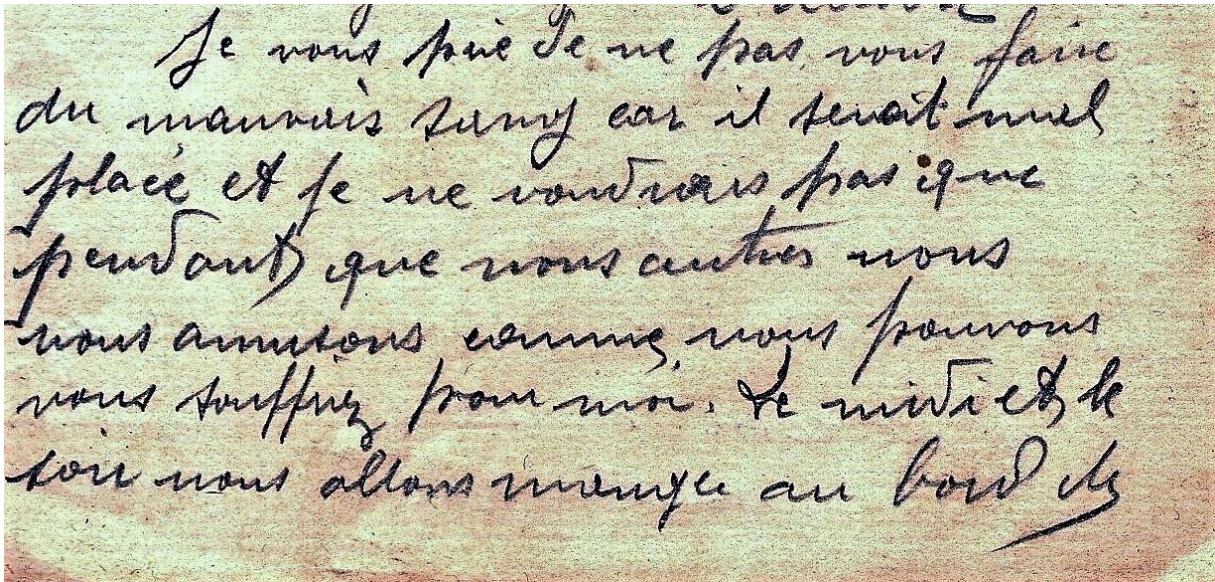 Je vous prie de ne pas vous faire
du mauvais sang car il serait mal
placé et je ne voudrais pas que
pendant que nous autres nous
nous amusons comme nous pouvons
vous souffrez pour moi. Le midi et le
soir nous allons manger au bord de